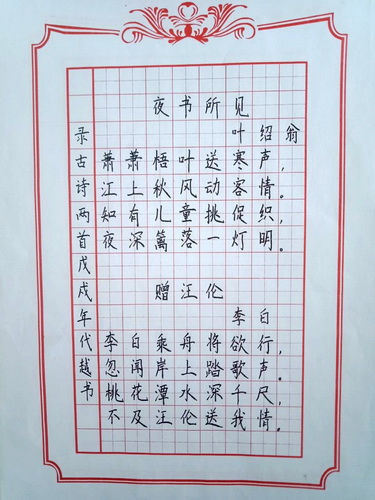 夜书所见
叶绍翁
萧萧悟叶送寒声，
江上秋风动客情。
知有儿童挑促织，
夜深篱落一灯明。
赠汪伦
李白
李白乘舟将欲行，
忽闻岸上踏歌声。
桃花潭水深千尺，
不及汪伦送我情。
录古诗两首戊戌年代越书